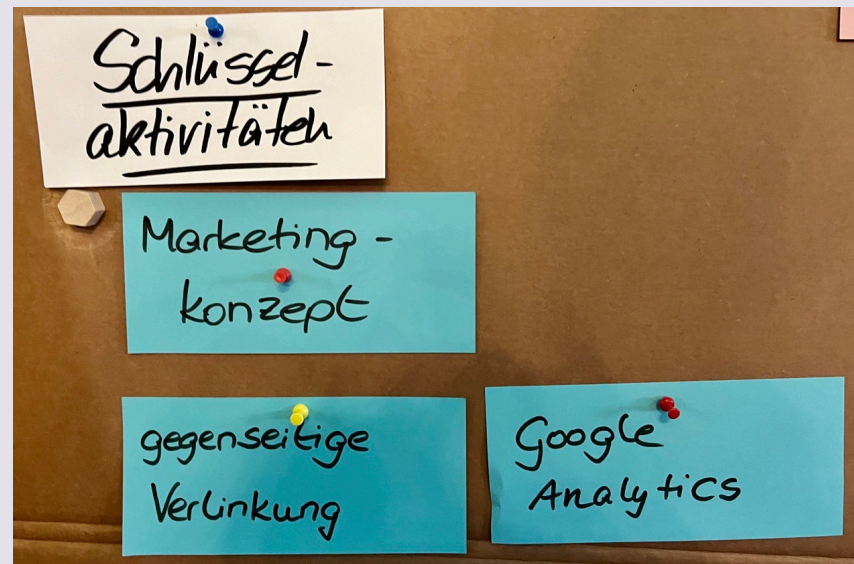 Schlüssel-
aktivitäten
Marketing-
konzept
gegenseitige
Verlinkung
Google
Analytics